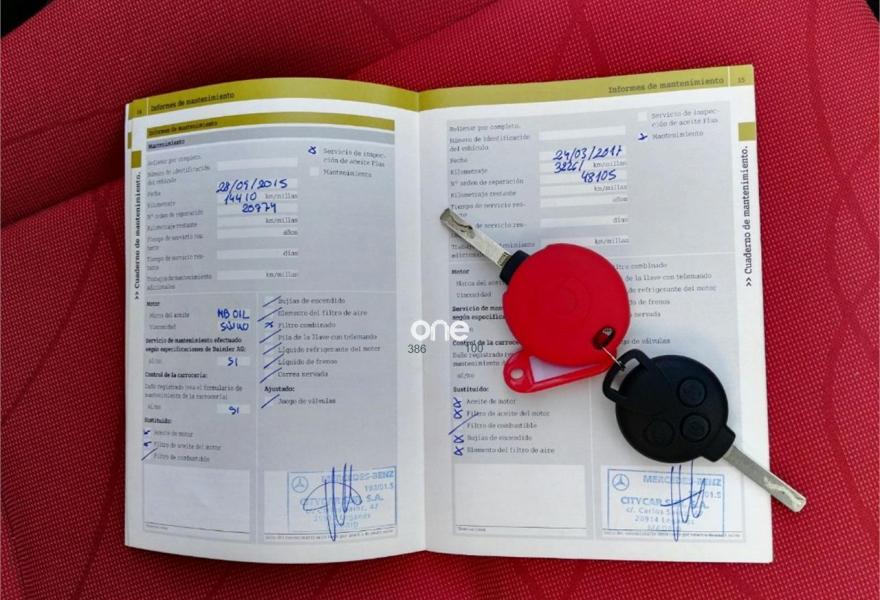 14 Informes de mantenimiento
Informes de mantenimiento
Mantenimiento
Rellenar por completo.
Número de identificación
del vehículo
Fecha 28/09/2015
Kilometraje 14410 km/millas
Nº orden de reparación 20974
Kilometraje restante km/millas
Tiempo de servicio res-
tante años
Tiempo de servicio res-
tante días
Trabajos de mantenimiento
adicionales km/millas
x Servicio de inspec-
ción de aceite Plus
Mantenimiento
>> Cuaderno de mantenimiento.
Motor
Marca del aceite MB OIL
Viscosidad 5W40
Servicio de mantenimiento efectuado
según especificaciones de Daimler AG:
sí/no SI
Control de la carrocería:
Daño registrado (en el formulario de
mantenimiento de la carrocería)
sí/no SI
Sustituido:
Aceite de motor
Filtro de aceite del motor
Filtro de combustible
Bujías de encendido
Elemento del filtro de aire
Filtro combinado
Pila de la llave con telemando
Líquido refrigerante del motor
Líquido de frenos
Correa nervada
Ajustado:
Juego de válvulas
MERCEDES-BENZ
CITYCAR S.A.
Informes de mantenimiento 15
Rellenar por completo.
Número de identificación
del vehículo
Fecha 24/03/2017
Kilometraje km/millas
Nº orden de reparación 48105
Kilometraje restante km/millas
Tiempo de servicio res-
años
de servicio res-
días
mantenimiento
adicionales km/millas
Servicio de inspec-
ción de aceite Plus
Mantenimiento
>> Cuaderno de mantenimiento.
Motor
Marca del aceite
Viscosidad
Servicio de
según
Control de la
Daño registrado
sí/no
combinado
de la llave con telemando
refrigerante del motor
de frenos
nervada
de válvulas
Sustituido:
Aceite de motor
Filtro de aceite del motor
Filtro de combustible
Bujías de encendido
Elemento del filtro de aire
MERCEDES-BENZ
CITYCAR
c/. Carlos
20914
one
386 100